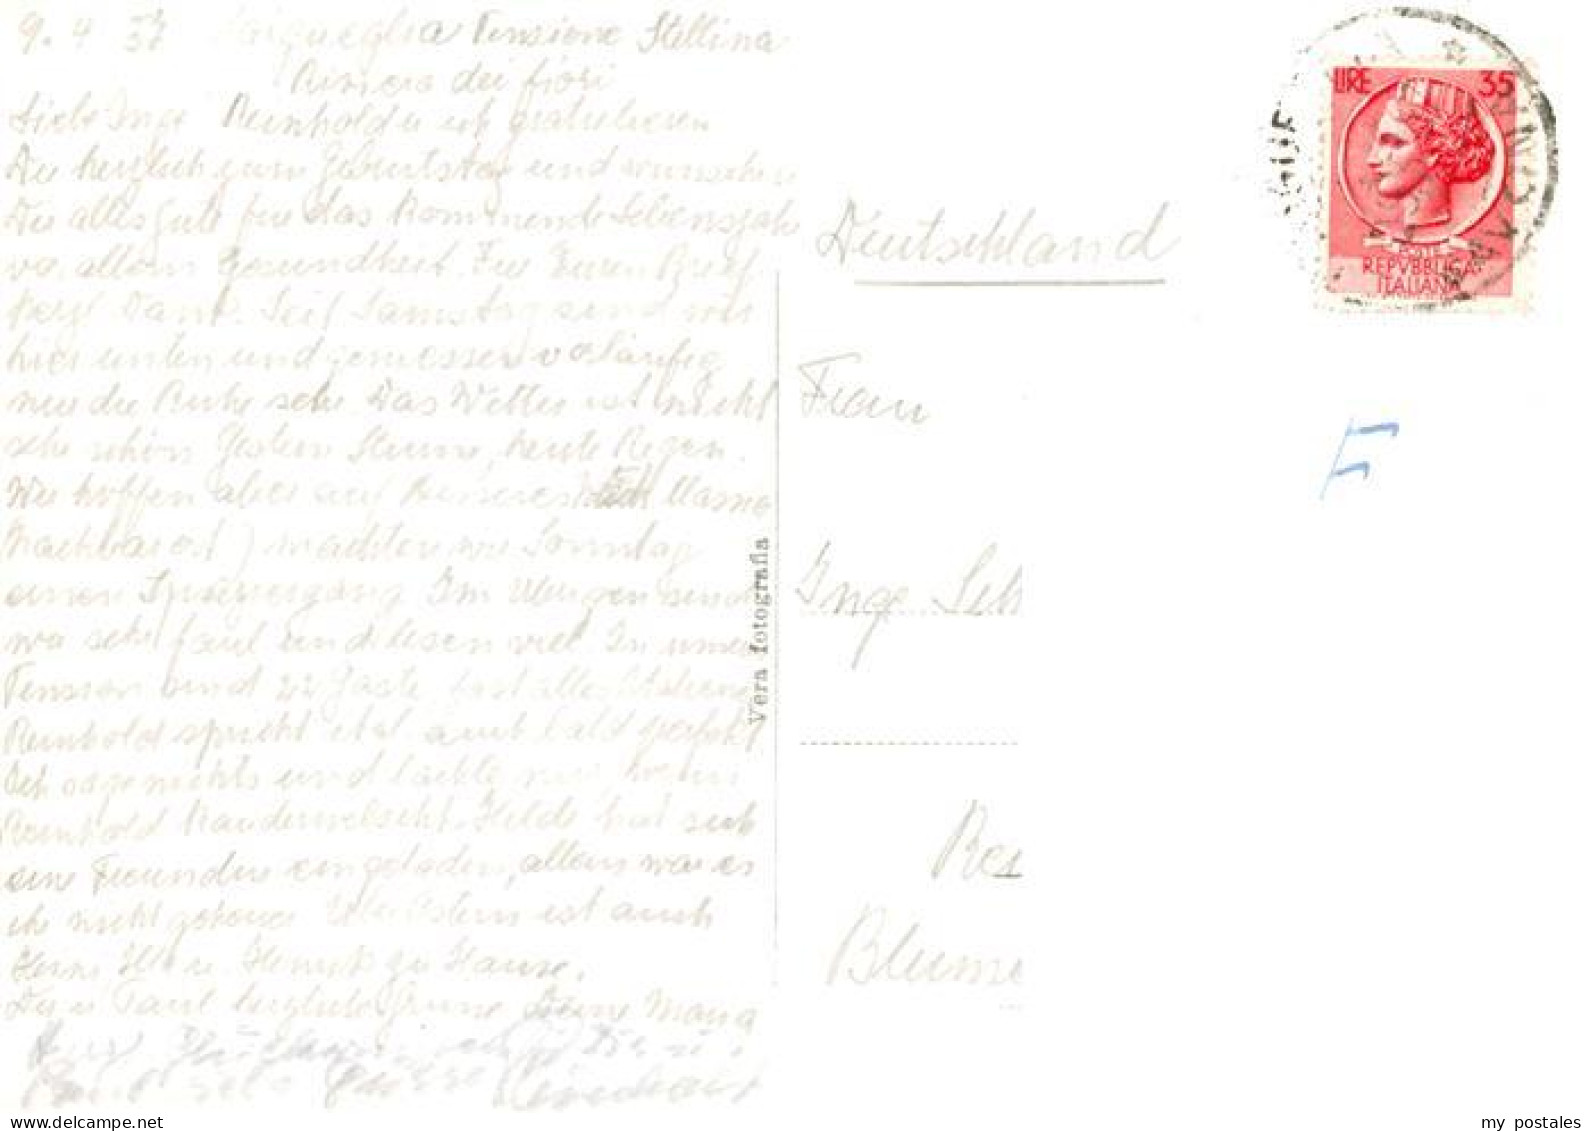 9. 4 57 Laigueglia Pensione Stellina
Riviera dei fiori
Liebe Inge Reinhold u ich gratulieren
Dir herzlich zum Geburtstag und wünschen
Dir alles Gute für das kommende Lebensjahr
vor allem Gesundheit. Für Euren
herzl Dank. Seit Samstag sind wir
hier unten und geniessen vorläufig
nur die Ruhe sehr. Das Wetter ist nicht
sehr schön Gestern Sturm, heute Regen.
Wir hoffen aber auf Besseres. Nach
machten wir Sonntag
einen Spaziergang Im übrigen sind
wir sehr faul und lesen viel In unserer
Pension sind 22 Gäste, fast alles Italiener
Reinhold spricht ital. auch bald perfekt
Ich sage nichts und lächle nur, wenn
Reinhold Kauderwelscht. Hilde hat sich
eine Freundin eingeladen, allein war es
ihr nicht geheuer Über Ostern ist auch
zu Hause.
Dir u Paul herzliche Grüsse Deine Maria
Deutschland
Frau
Inge Sch
Blume
Vera fotografia
LIRE 35
POSTE
REPVBBLICA
ITALIANA
F
my_postales